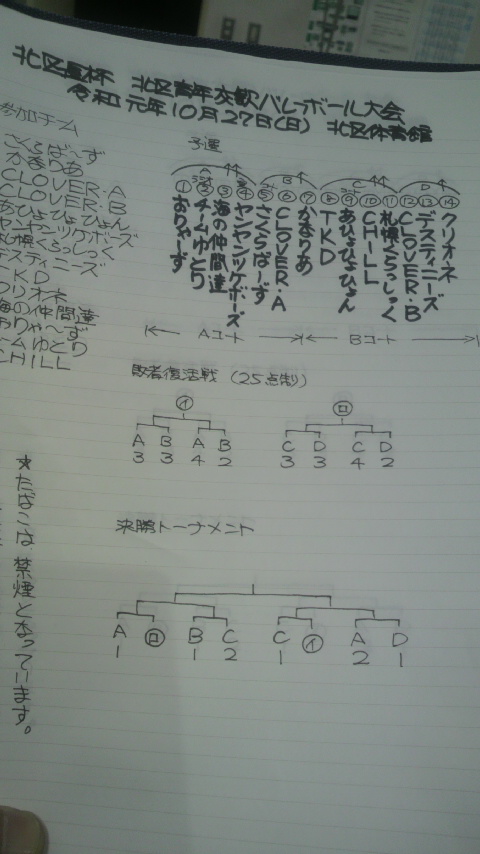 北区長杯 北区青年交歓バレーボール大会
令和元年10月27日(日) 北区体育館
参加チーム
さくらぱーず
かまりあ
CLOVER・A
CLOVER・B
あひょひょひょん
ヤンヤンツケボーズ
札幌くらっしっく
デスティニーズ
TKD
クリオネ
海の仲間達
おりゃーず
チームゆとり
CHILL
予選
A B C D
① おりゃーず
② チームゆとり
③ 海の仲間達
④ ヤンヤンツケボーズ
⑤ さくらぱーず
⑥ CLOVER・A
⑦ かまりあ
⑧ TKD
⑨ あひょひょひょん
⑩ CHILL
⑪ 札幌くらっしゃく
⑫ CLOVER・B
⑬ デスティニーズ
⑭ クリオネ
Aコート Bコート
敗者復活戦 (25点制)
㋑ ㋺
A B A B C D C D
3 3 4 2 3 3 4 2
決勝トーナメント
A ㋺ B C C ㋑ A D
1 1 2 1 2 1
★たばこは、禁煙となっています。